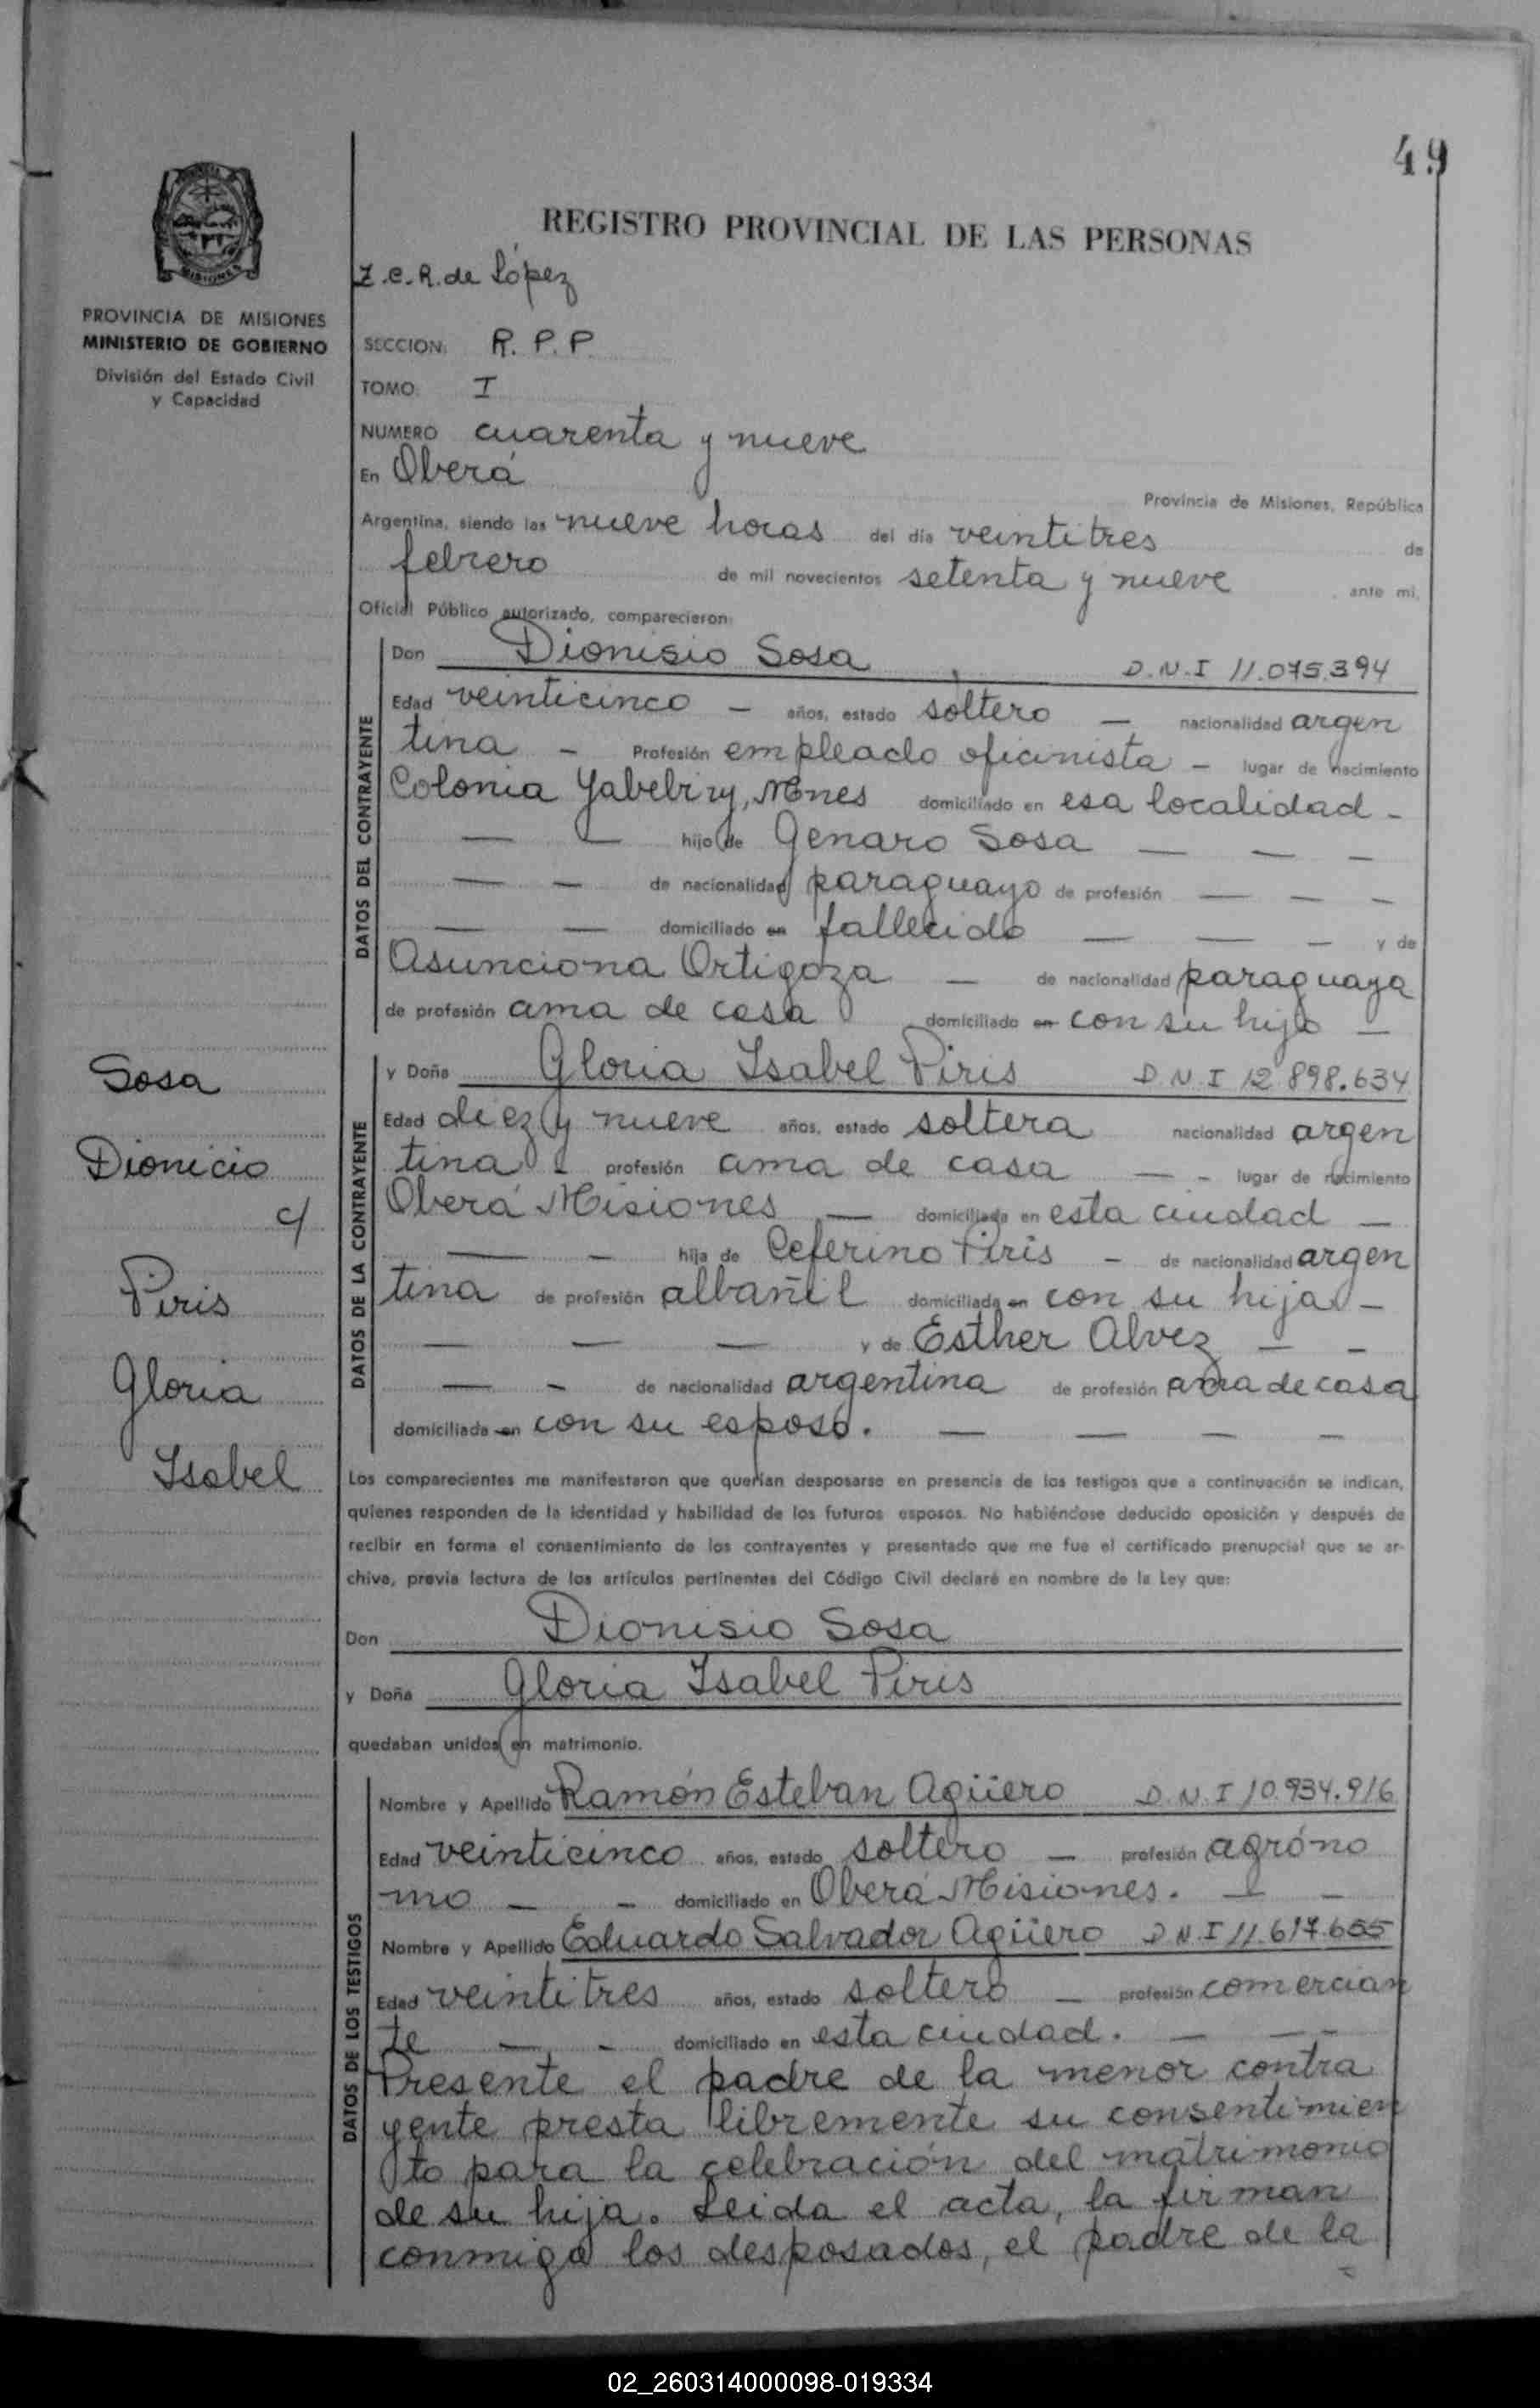 49
REGISTRO PROVINCIAL DE LAS PERSONAS
Z.C.R. de López
MISIONES
PROVINCIA DE MISIONES
MINISTERIO DE GOBIERNO
División del Estado Civil
y Capacidad
SECCION: R. P. P.
TOMO: I
NUMERO cuarenta y nueve
En Oberá
Provincia de Misiones, República
Argentina, siendo las nueve horas del día veintitres de
febrero de mil novecientos setenta y nueve ante mi,
Oficial Público autorizado, comparecieron:
DATOS DEL CONTRAYENTE
Don Dionisio Sosa D.N.I 11.075.394
Edad veinticinco — años, estado soltero — nacionalidad argen
tina — Profesión empleado oficinista — lugar de nacimiento
Colonia Yabebiry, Mnes domiciliado en esa localidad —
— — hijo de Genaro Sosa — — —
— — de nacionalidad paraguayo de profesión — — —
— — domiciliado en fallecido — — — y de
Asunciona Ortigoza — de nacionalidad paraguaya
de profesión ama de casa domiciliado en con su hijo —
DATOS DE LA CONTRAYENTE
y Doña Gloria Isabel Piris D.N.I 12 898.634
Edad diez y nueve años, estado soltera nacionalidad argen
tina — profesión ama de casa — — lugar de nacimiento
Oberá Misiones — domiciliada en esta ciudad —
— — hija de Ceferino Piris — de nacionalidad argen
tina de profesión albañil domiciliada en con su hija —
— — — y de Esther Alvez — —
— — de nacionalidad argentina de profesión ama de casa
domiciliada en con su esposo. — — — —
Sosa
Dionicio
c/
Piris
Gloria
Isabel
Los comparecientes me manifestaron que querían desposarse en presencia de los testigos que a continuación se indican,
quienes responden de la identidad y habilidad de los futuros esposos. No habiéndose deducido oposición y después de
recibir en forma el consentimiento de los contrayentes y presentado que me fue el certificado prenupcial que se ar-
chiva, previa lectura de los artículos pertinentes del Código Civil declaré en nombre de la Ley que:
Don Dionisio Sosa
y Doña Gloria Isabel Piris
quedaban unidos en matrimonio.
DATOS DE LOS TESTIGOS
Nombre y Apellido Ramón Esteban Agüero D.N.I 10.934.916
Edad veinticinco años, estado soltero — profesión agróno
mo — — domiciliado en Oberá Misiones. — —
Nombre y Apellido Eduardo Salvador Agüero D.N.I 11.617.655
Edad veintitres años, estado soltero — profesión comercian
te — — domiciliado en esta ciudad. — — —
Presente el padre de la menor contra
yente presta libremente su consentimien
to para la celebración del matrimonio
de su hija. Leida el acta, la firman
conmigo los desposados, el padre de la
02_260314000098-019334